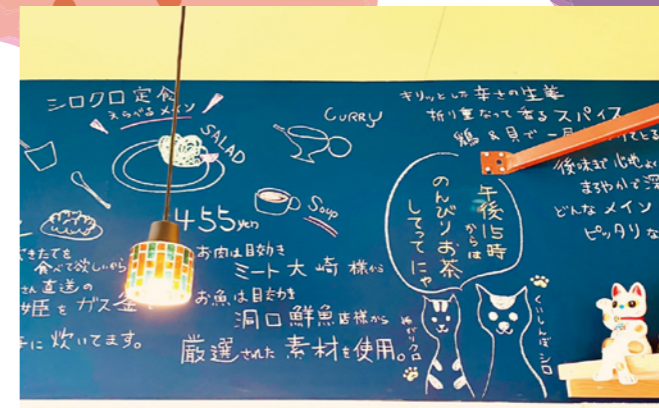 シロクロ定食
えらべるメイン
SALAD
CURRY
Soup
455yen
できたてを
食べて欲しいから
さん直送の
姫をガス釜
に炊いてます。
お肉は目利き
ミート大崎様から
お魚は目利き
洞口鮮魚店様から
厳選された素材を使用。
キリッとした辛さの生姜
折り重なって香るスパイス
鶏&貝で一
後味まで心地よく
まろやかで深
どんなメイン
ピッタリな
午後15時
からは
のんびりお茶
してってにゃ
クロ
くいしんぼシロ